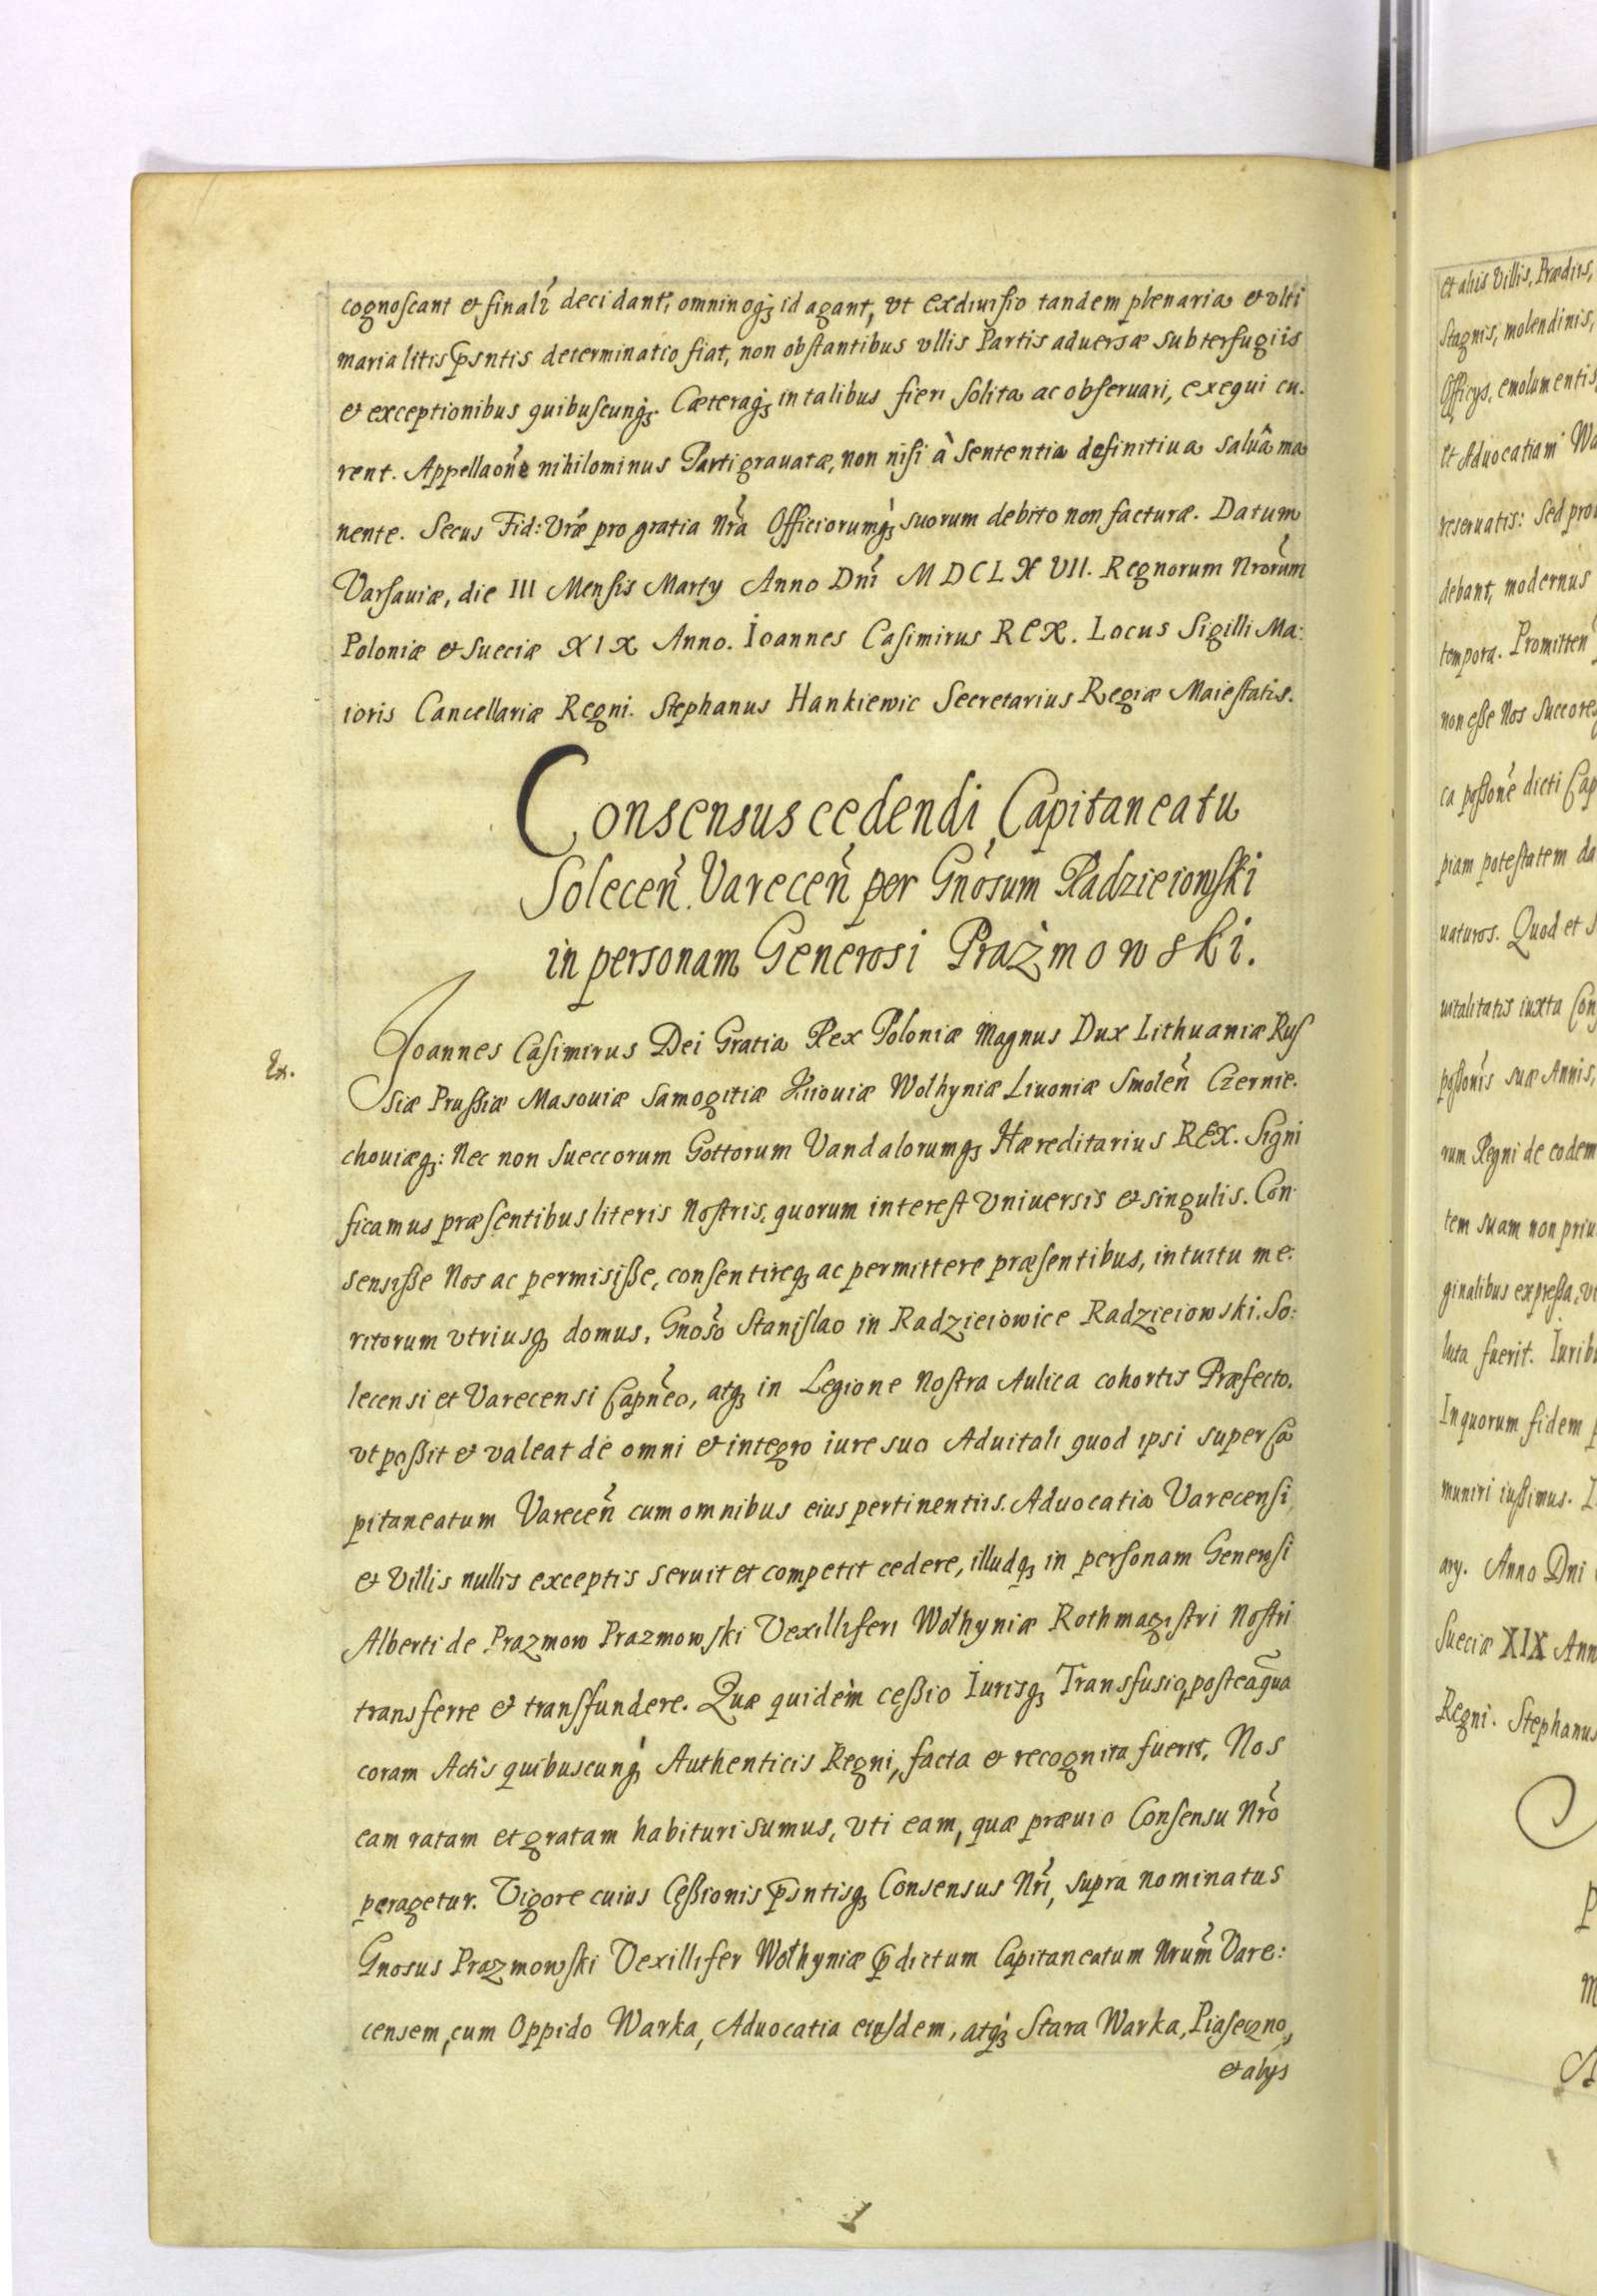 cognoscant et final̃r decidant, omninoq; id agant, vt exdiuisio tandem plenaria et vlti
maria litis p̃sntis determinatio fiat, non obstantibus vllis Partis aduersæ subterfugiis
et exceptionibus quibuscunq; Cæteraq; in talibus fieri solita ac obseruari, exequi cu.
rent. Appellaõne nihilominus Parti grauatæ, non nisi à Sententia definitiua saluâ ma
nente. Secus Fid: Vr̃æ pro gratia Nr̃a Officiorumq; suorum debito non facturæ. Datum
Varsauiæ, die III Mensis Marty Anno Dnĩ MDCLXVII. Regnorum Nrõrum
Poloniæ et Sueciæ XIX Anno. Ioannes Casimirus REX. Locus Sigilli Ma:
ioris Cancellariæ Regni. Stephanus Hankiewic Secretarius Regiæ Maiestatis.
Consensus cedendi Capitaneatu
Solecen̄. Varecen̄ per Gñosum Radzieiowski
in personam Generosi Prażmowski.
Ex.
Joannes Casimirus Dei Gratia Rex Poloniæ Magnus Dux Lithuaniæ Rus
siæ Prussiæ Masouiæ Samogitiæ Kiiouiæ Wolhyniæ Liuoniæ Smolen̄ Czernie.
chouiæq;: Nec non Sueccorum Gottorum Vandalorumq; Hæreditarius REX. Signi
ficamus præsentibus literis Nostris, quorum interest Vniuersis et singulis. Con
sensisse Nos ac permisisse, consentireq; ac permittere præsentibus, intuitu me:
ritorum vtriusq; domus, Gnõso Stanislao in Radzieiowice Radzieiowski. So:
lecensi et Varecensi Capnẽo, atq; in Legione Nostra Aulica cohortis Præfecto.
vt possit et valeat de omni et integro iure suo Aduitali quod ipsi super Ca
pitaneatum Varecen̄ cum omnibus eius pertinentiis. Aduocatia Varecensi,
et Villis nullis exceptis seruit et competit cedere, illudq; in personam Generosi
Alberti de Prazmow Prazmowski Vexilliferi Wołhyniæ Rothmagistri Nostri
transferre et transfundere. Quæ quidem cessio Iurisq; Transfusio, posteaq̃ua
coram Actis quibuscunq; Authenticis Regni, facta et recognita fuerit, Nos
eam ratam et gratam habituri sumus, vti eam, quæ præuio Consensu Nrõ
peragetur. Vigore cuius Cessionis p̃sntisq; Consensus Nrĩ, supra nominatus
Gnosus Prazmowski Vexillifer Wołhyniæ p̃dictum Capitaneatum Nrũm Vare:
censem, cum Oppido Warka, Aduocatia eiusdem, atq; Stara Warka, Piaseczno,
et alijs
1
et aliis Villis, Prædiis,
Stagnis, molendinis,
Officys, emolumentis
et Aduocatiam Wa
reseruatis: Sed pro
debant, modernus
tempora. Promitten
non esse Nos Succores
ca possonẽ dicti Cap
piam potestatem da
uaturos. Quod et S
uitalitatis iuxta Con
possonĩs suæ Annis,
rum Regni de eodem
tem suam non priu
ginalibus expressa, vi
luta fuerit. Iurib
In quorum fidem p
muniri iussimus. D
ary. Anno Dni
Sueciæ XIX Ann
Regni. Stephanus